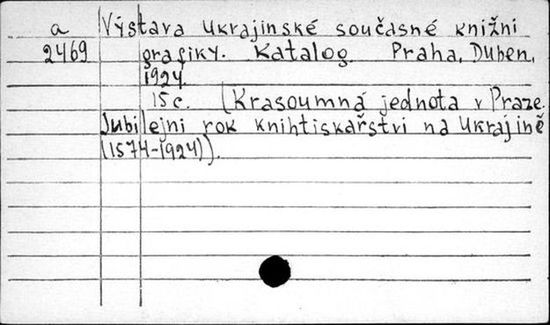 a Výstava ukrajinské současné knižní
2469 grafiky. Katalog. Praha, Duben,
1924.
15 c. (Krasoumná jednota v Praze.
Jubilejni rok knihtiskařstvi na Ukrajině
(1574-1924)).